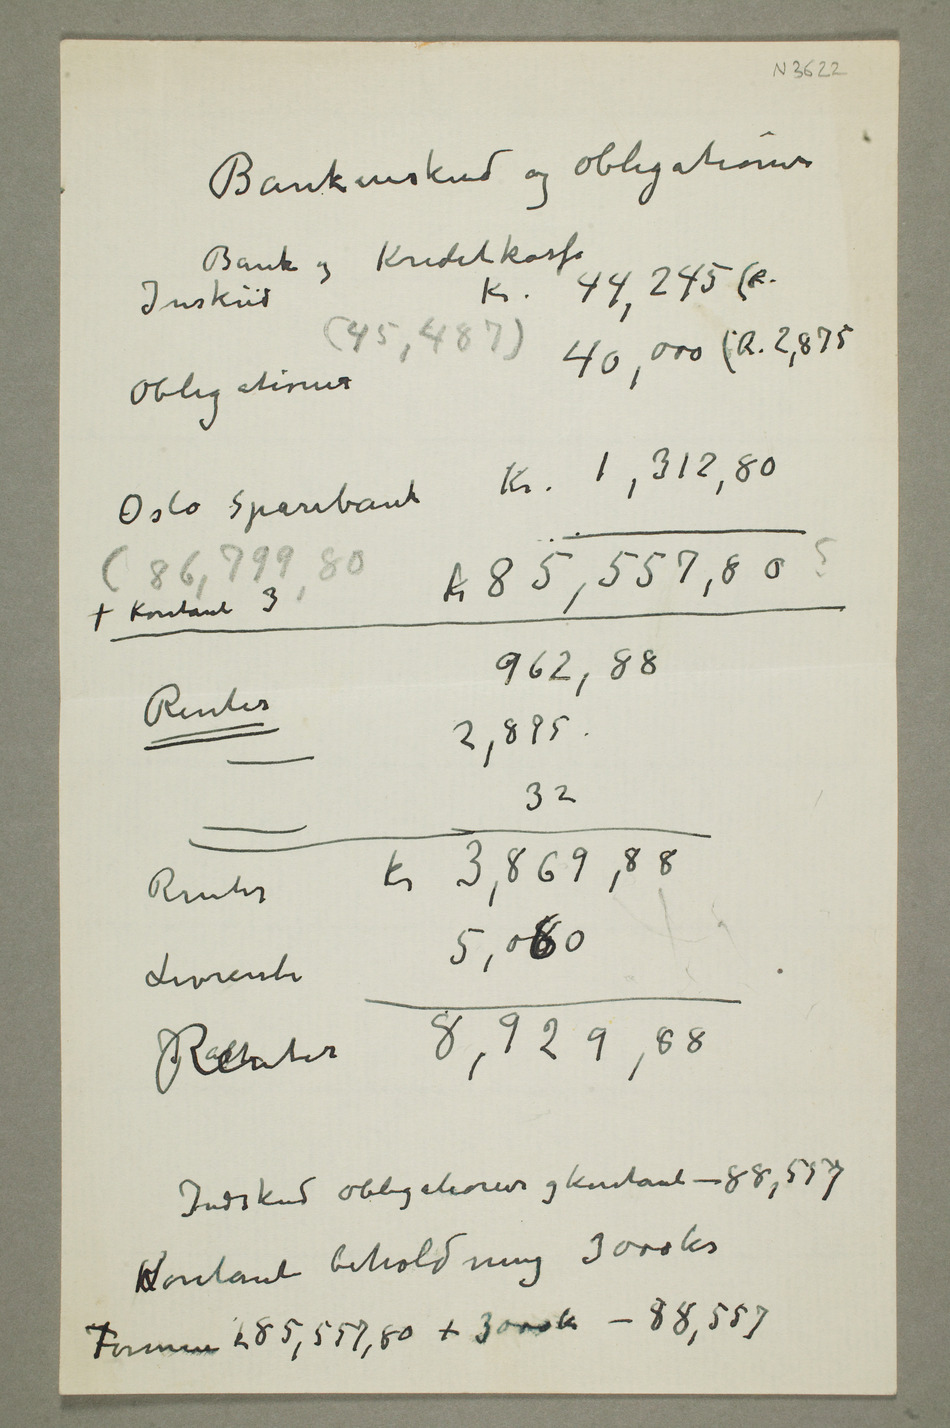 N 3622
Bankinskud og obligationer
Bank og Kreditkasse
Inskud Kr. 44,245 (R.
(45,487)
40,000 (R. 2,875
Obligationer
Oslo Sparebank Kr. 1,312,80
(86,799,80 kr 85,557,80 5
+ Kontant 3
962,88
Renter
2,895.
32
Renter kr 3,869,88
5,060
Livrente
Renter 8,929,88
Indskud obligationer og kontant — 88,557
Kontant beholdning 3000 kr
Formue k 85,557,80 + 3000 k — 88,557